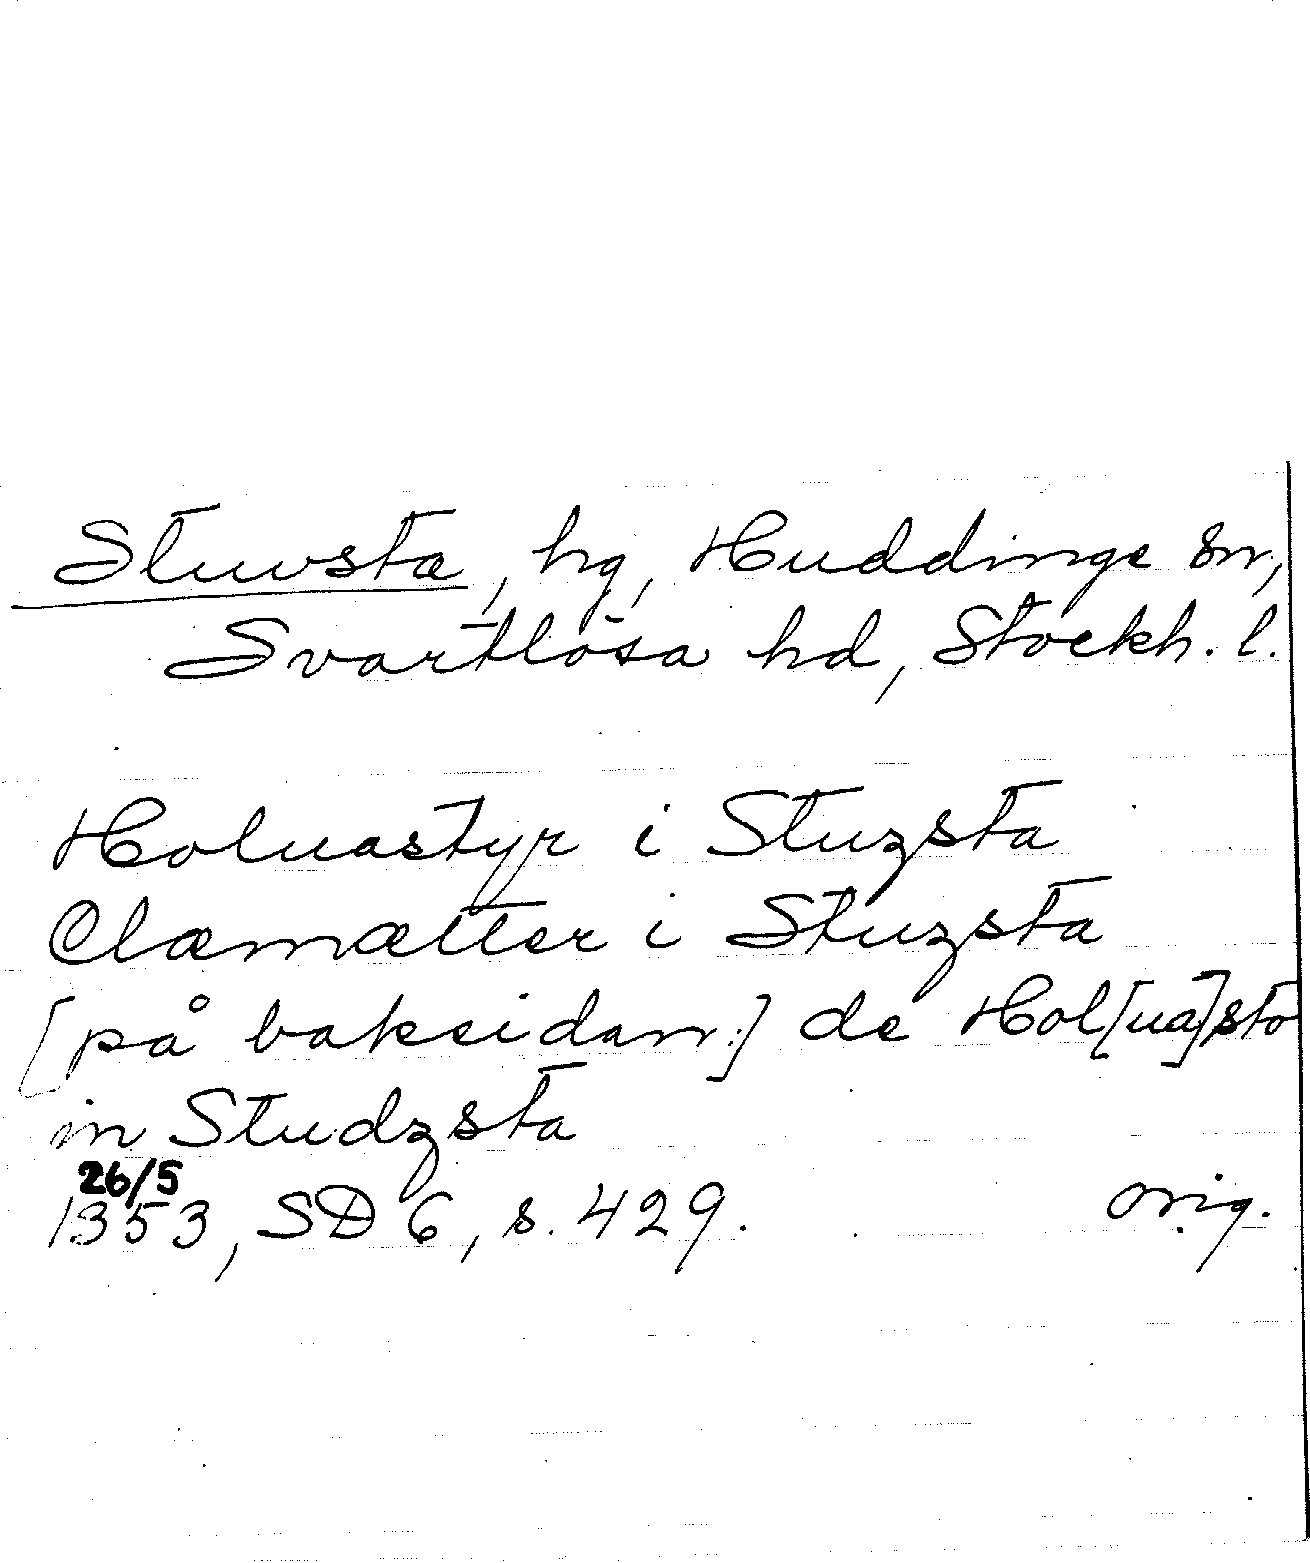 Stuvsta, hg, Huddinge sn,
Svartlösa hd, Stockh. l.
Holuastyr i Stuzsta
Clæmætter i Stuzsta
[på baksidan:] de Hol[ua]sto
in Studzsta
26/5
1353, SD 6, s. 429. orig.